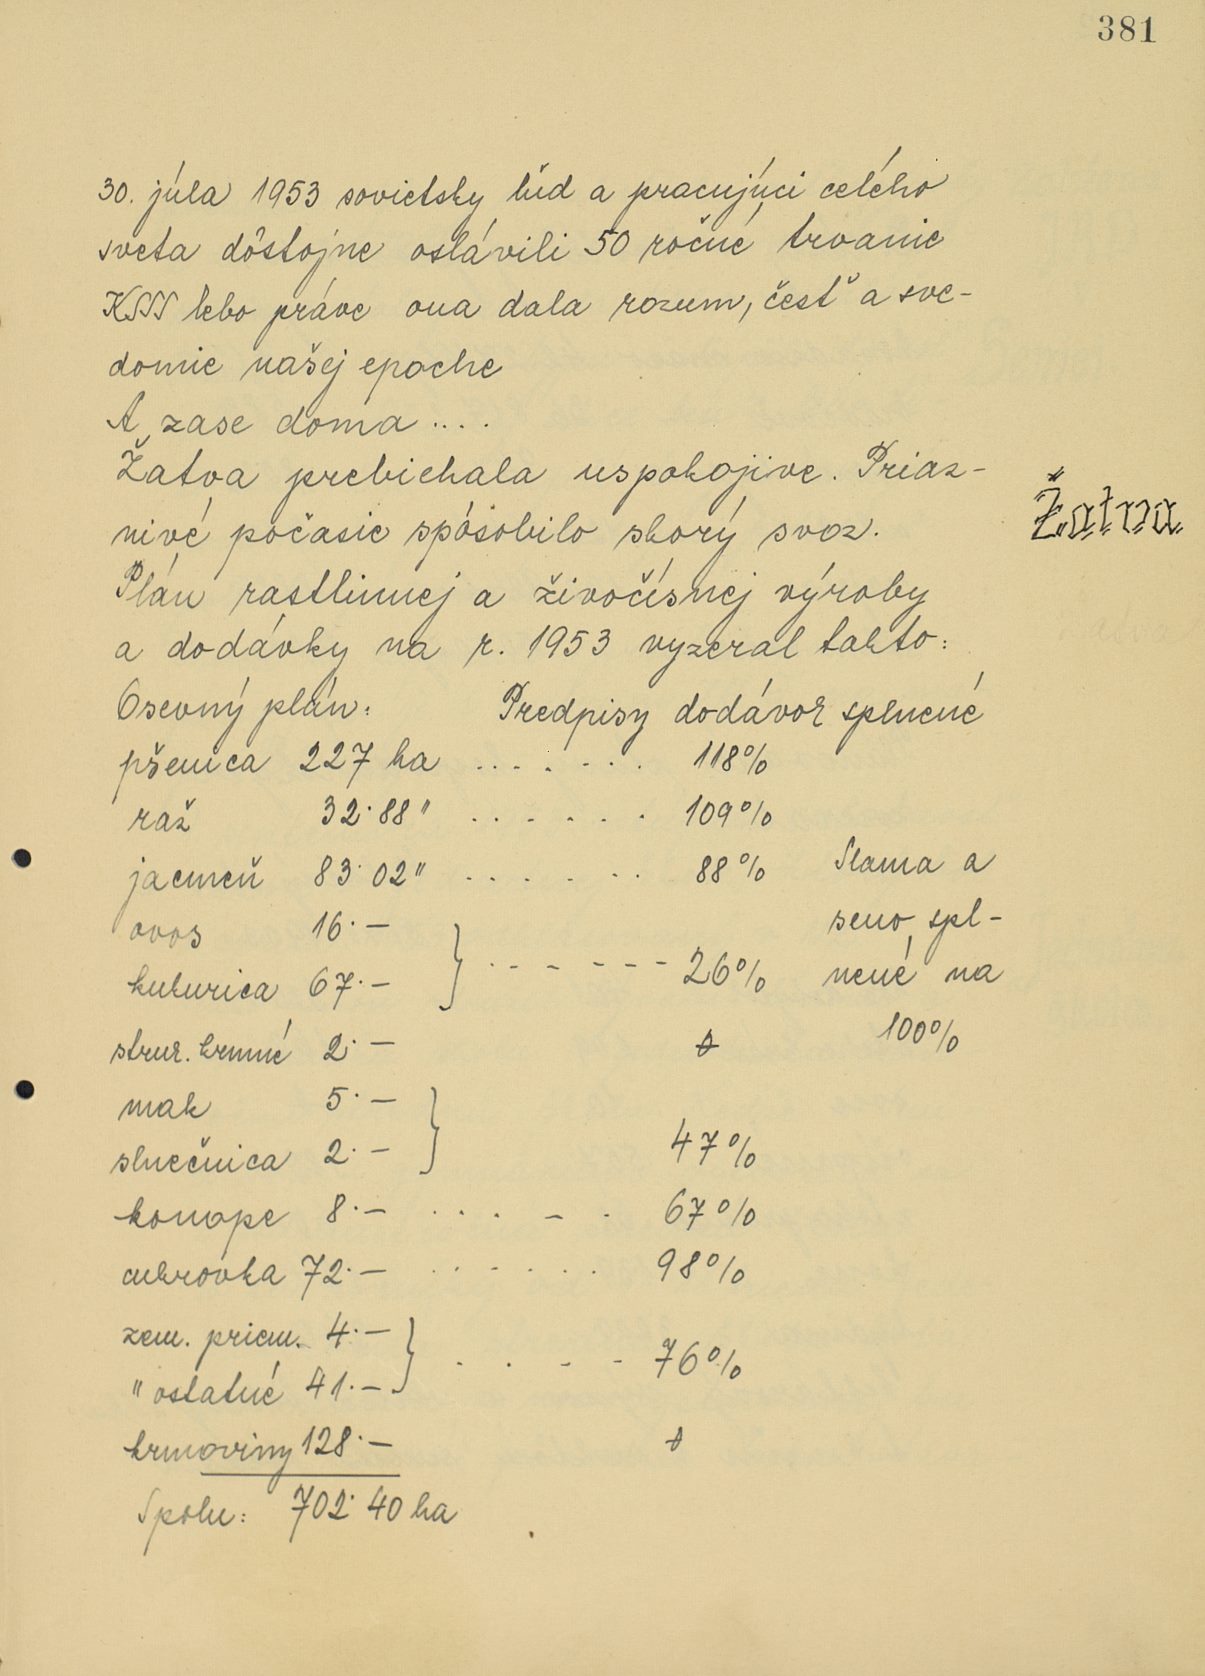 381
30. júla 1953 sovietsky ľud a pracujúci celého
sveta dôstojne oslávili 50 ročné trvanie
KSSS lebo práve ona dala rozum, česť a sve-
domie našej epoche
A zase doma ....
Žatva prebiehala uspokojive. Priaz-
nivé počasie spôsobilo skorý svoz.
Žatva
Plán rastlinnej a živočíšnej výroby
a dodávky na r. 1953 vyzeral takto:
Osevný plán: Predpisy dodávok splnené
pšenica 227 ha ....... 118%
raž 32·88 " ...... 109%
jacmeň 83·02 " ...... 88% Slama a
ovos 16·— seno spl-
kukurica 67·— } ------- 26% nené na
struk. krmné 2·— 0 100%
mak 5·—
slnečnica 2·— } 47%
konope 8·— ...... 67%
cukrovka 72·— ...... 98%
zem. priem. 4·—
" ostatné 41·— } ..... 76%
krmoviny 128·— 0
Spolu: 702·40 ha